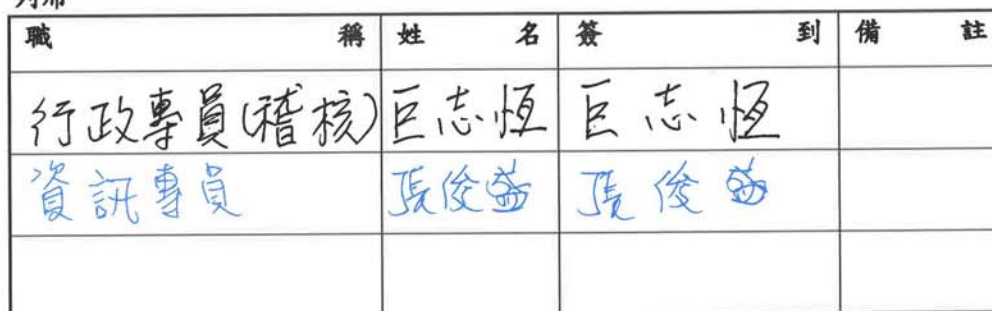 列席
職稱 姓名 簽到 備註
行政專員(稽核) 巨志恒 巨志恒
資訊專員 張俊益 張俊益